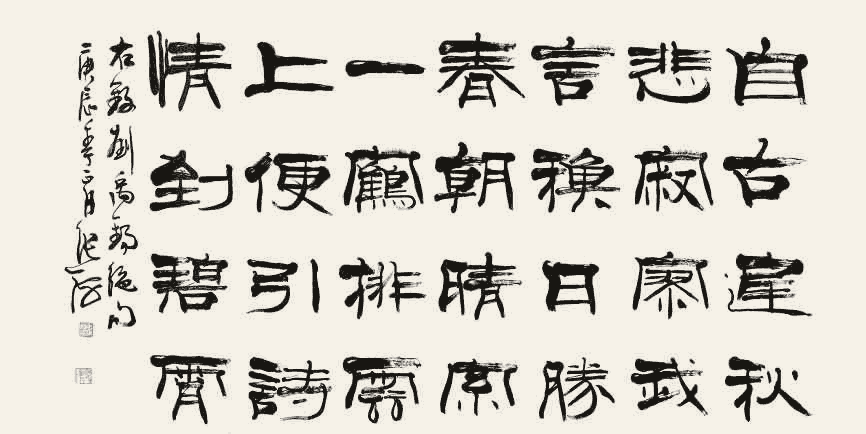 自古逢秋
悲寂寥我
言秋日勝
春朝晴空
一鶴排雲
上便引詩
情到碧霄
右錄劉禹錫絕句
庚辰年正月張海